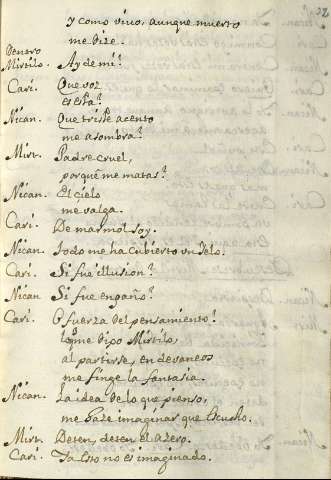 y como vivo, aunque muerto
me dize.
Dentro
Mirtilo. Ay de mi!
Cari. Que voz
es esta?
Nican. Que triste acento
me asombra?
Mirt. Padre cruel,
porque me matas?
Nican. El cielo
me valga.
Cari. De marmol soy.
Nican. Todo me ha cubierto un Yelo.
Cari. Si fue illusion?
Nican Si fue engaño?
Cari. O fuerza del pensamiento!
lo q̃ me dijo Mirtilo,
al partirse, en devaneos
me finge la fantasia.
Nican. La idea de lo que pienso,
me haze imaginar que escucho.
Mirt. Deten, deten el azero.
Cari. Ya esto no es imaginado.